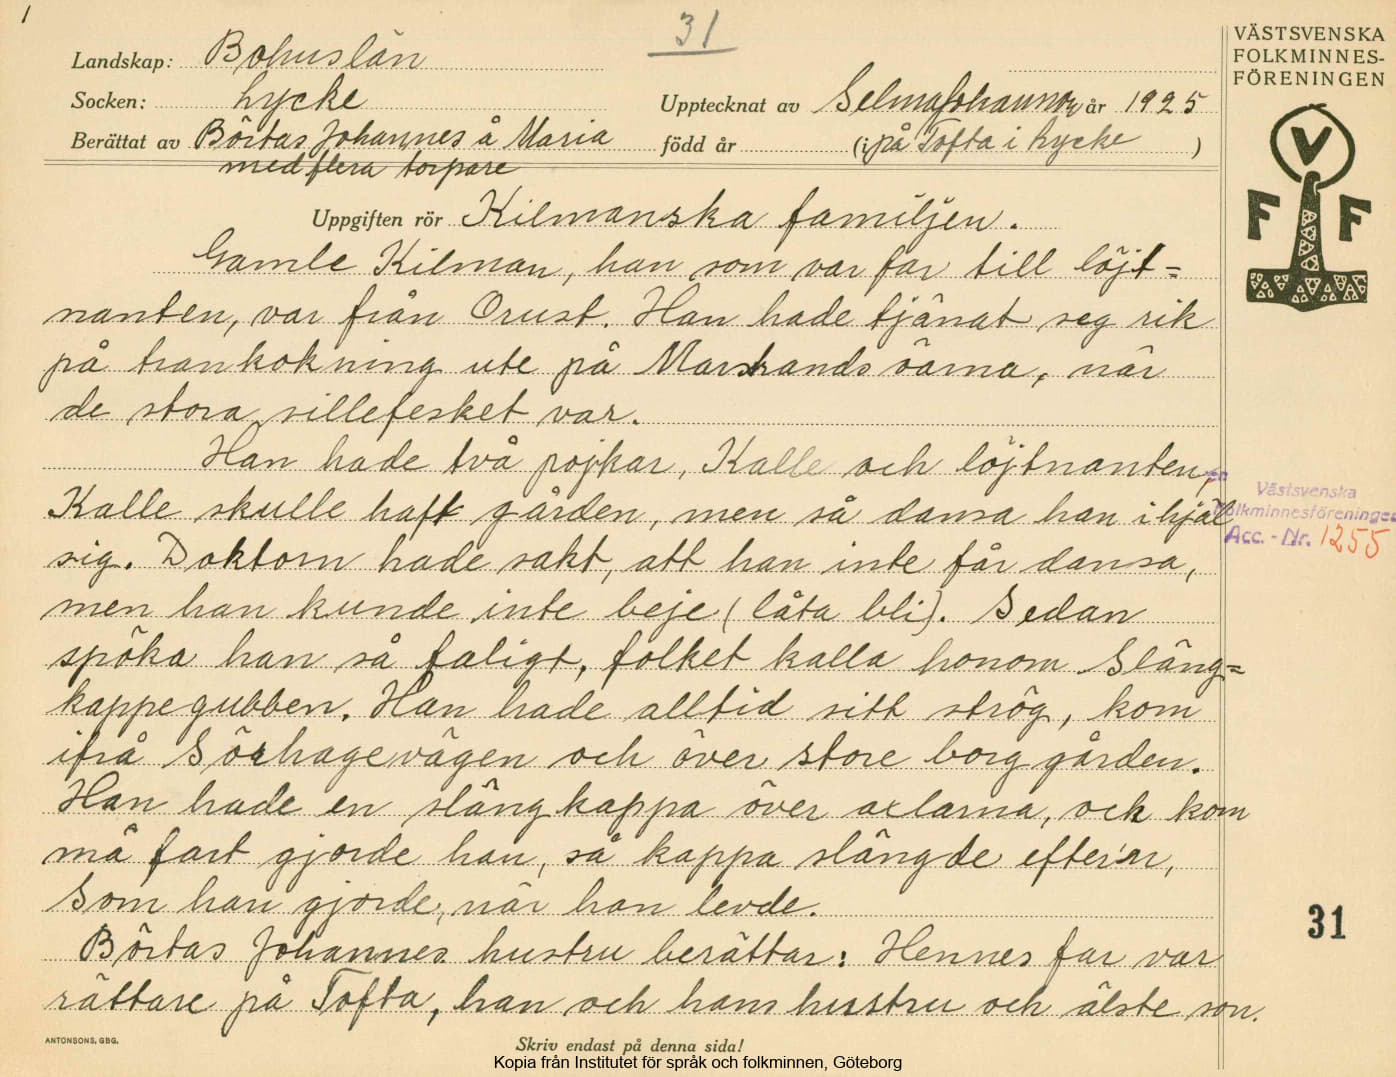 1
31
VÄSTSVENSKA
FOLKMINNES-
FÖRENINGEN
Landskap: Bohuslän
Socken: Lycke
Upptecknat av Selma Johansson år 1925
Berättat av Börtas Johannes å Maria
född år (i på Tofta i Lycke )
med flera torpare
V
F F
Uppgiften rör Kilmanska familjen.
Gamle Kilman, han som var far till löjt=
nanten, var från Orust. Han hade tjänat seg rik
på trankokning ute på Marstrandsöarna, när
de stora sillefesket var.
Han hade två pojkar, Kalle och löjtnanten,
Kalle skulle haft gården, men så dansa han ihjäl
sig. Doktorn hade sakt, att han inte får dansa,
men han kunde inte beje (låta bli). Sedan
spöka han så faligt, folket kalla honom Släng=
kappegubben. Han hade alltid sitt strög, kom
ifrå Sörhagevägen och över store borggården.
Han hade en slängkappa över axlarna, och kom
må fart gjorde han, så kappa slängde efter'n,
Som han gjorde, när han levde.
Börtas Johannes hustru berättar: Hennes far var
rättare på Tofta, han och hans hustru och älste son.
Västsvenska
Folkminnesföreningen
Acc. - Nr. 1255
31
ANTONSONS, GBG.
Skriv endast på denna sida!
Kopia från Institutet för språk och folkminnen, Göteborg